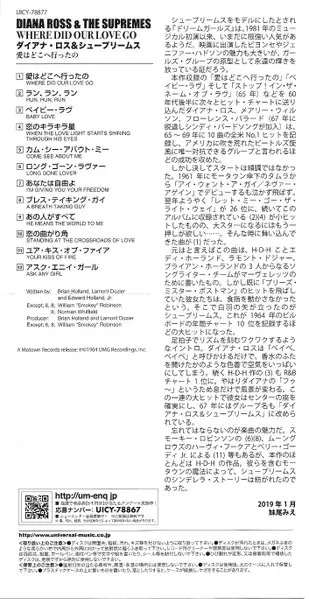 UICY-78877
DIANA ROSS & THE SUPREMES
WHERE DID OUR LOVE GO
ダイアナ・ロス&シュープリームス
愛はどこへ行ったの
1 愛はどこへ行ったの
WHERE DID OUR LOVE GO
2 ラン、ラン、ラン
RUN, RUN, RUN
3 ベイビー・ラヴ
BABY LOVE
4 恋のキラキラ星
WHEN THE LOVE LIGHT STARTS SHINING
THROUGH HIS EYES
5 カム・シー・アバウト・ミー
COME SEE ABOUT ME
6 ロング・ゴーン・ラヴァー
LONG GONE LOVER
7 あなたは自由よ
I'M GIVING YOU YOUR FREEDOM
8 ブレス・テイキング・ガイ
A BREATH TAKING GUY
9 あの人がすべて
HE MEANS THE WORLD TO ME
10 恋の曲がり角
STANDING AT THE CROSSROADS OF LOVE
11 ユア・キス・オブ・ファイア
YOUR KISS OF FIRE
12 アスク・エニィ・ガール
ASK ANY GIRL
Written by: Brian Holland, Lamont Dozier
and Edward Holland, Jr.
Except: 6, 8: William "Smokey" Robinson
9: Norman Whitfield
Producer: Brian Holland and Lamont Dozier
Except: 6, 8: William "Smokey" Robinson
A Motown Records release; ℗©1964 UMG Recordings, Inc.
シュープリームスをモデルにしたとされ
る『ドリームガールズ』は、1981年のミュー
ジカル初演以来、いまだに根強い人気があ
るようだ。映画に出演したビヨンセやジェ
ニファー・ハドソンの魅力も大きいが、ガー
ルズ・グループの原型として永遠の輝きを
放っている証だろう。
本作収録の「愛はどこへ行ったの」「ベイ
ビー・ラヴ」そして「ストップ!イン・ザ・
ネーム・オブ・ラヴ」(65年)などを60
年代後半に次々とヒット・チャートに送り
込んだダイアナ・ロス、メアリー・ウィル
ソン、フローレンス・バラード(67年に
脱退しシンディ・バードソングが加入)は、
65~69年に10曲の全米No.1ヒットを記
録し、アメリカに吹き荒れたビートルズ旋
風に唯一対抗できるグループと言われるほ
どの成功を収めた。
しかし決してスタートは順調ではなかっ
た。1961年にモータウン傘下のタムラか
ら「アイ・ウォント・ア・ガイ/ネヴァー・
アゲイン」でデビューするも泣かず飛ばず、
翌年ようやく「レット・ミー・ゴー・ザ・
ライト・ウェイ」が26位に、続いてこの
アルバムに収録されている(2)(4)が小ヒッ
トしたものの、大スターになるにはもう一
押しが欲しい……。そんな時に舞い込んで
きた曲が(1)だった。
元はと言えばこの曲は、H-D-Hことエ
ディ・ホーランド、ラモント・ドジャー、
ブライアン・ホーランドの3人からなるソ
ングライター・チームがマーヴェレッツの
ために書いたもの。しかし既に「プリーズ・
ミスター・ポストマン」のヒットを飛ばし
ていた彼女たちは、食指を動かさなかった
という。そこで白羽の矢が立ったのが
シュープリームス。これが1964年のビル
ボードの年間チャート10位を記録するほ
どの大ヒットになった。
足拍子でリズムを刻むワクワクするよう
なイントロ。ダイアナ・ロスは「ベイベ、
ベイベ」と呼びかけるだけで、香水のふた
を開けたかのような色香で空気をいっぱい
にしてしまう。続くH-D-H作の(3)もR&B
チャート1位に。やはりダイアナの「フゥ
〜」というため息だけで風景が変わる。こ
の一連の大ヒットで彼女はセンターの座を
確実にし、67年にはグループ名も「ダイ
アナ・ロス&シュープリームス」に改めら
れている。
忘れてはならないのが楽曲の魅力だ。ス
モーキー・ロビンソンの(6)(8)、ムーング
ロウズのハーヴィ・フークアとベリー・ゴー
ディ Jr.による(11)等もあるが、本作のほ
とんどはH-D-Hの作品。彼らを含むモー
タウンの魔法によって、シュープリームス
のシンデレラ・ストーリーは紡がれたので
あった。
2019年1月
妹尾みえ
http://um-enq.jp
応募ナンバー: UICY-78867
http://www.universal-music.co.jp